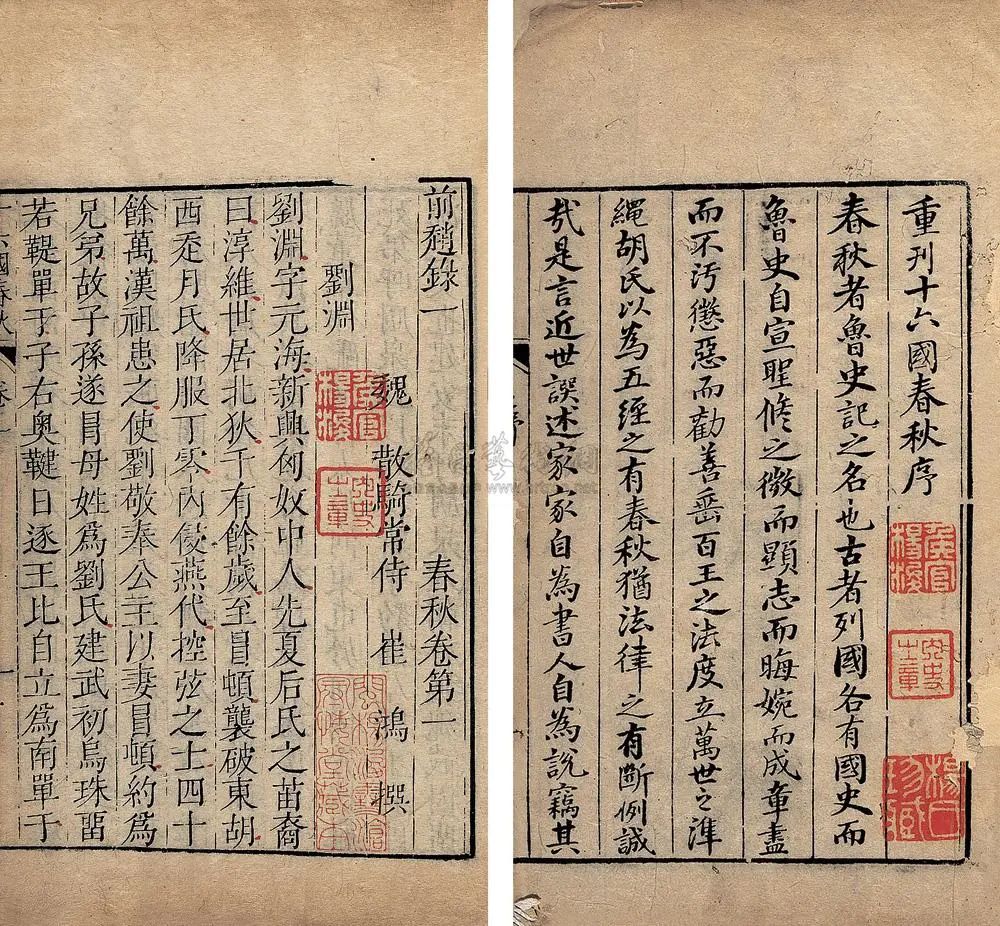 重刊十六國春秋序
春秋者魯史記之名也古者列國各有國史而
魯史自宣聖脩之微而顯志而晦婉而成章盡
而不汚懲惡而勸善垂百王之法度立萬世之準
繩胡氏以為五經之有春秋猶法律之有斷例誠
㢤是言近世誤述家家自為書人自為說竊其
前趙錄一 春秋卷第一
魏 散騎常侍 崔 鴻 撰
劉淵
劉淵字元海新興匈奴中人先夏后氏之苗裔
曰淳維世居北狄千有餘歲至冒頓襲破東胡
西走月氏降服丁零內侵燕代控弦之士四十
餘萬漢祖患之使劉敬奉公主以妻冒頓約為
兄弟故子孫遂冒母姓為劉氏建武初烏珠畱
若鞮單于子右奧鞬日逐王比自立為南單于
國春秋
侯官楊浚
楊氏珍藏